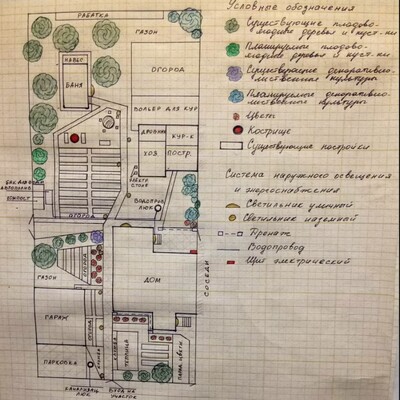 Условные обозначения
Существующие плодово-
ягодные деревья и куст-ки
Планируемые плодово-
ягодные деревья и куст-ки
Существующие декоративно-
лиственные культуры
Планируемые декоративно-
лиственные культуры
Цветы
Кострище
Существующие постройки
Система наружного освещения
и энергоснабжения
Светильник уличной
Светильник наземный
Дренаж
Водопровод
Щит электрический
РАБАТКА
ГАЗОН
НАВЕС
БАНЯ
ОГОРОД
ВОЛЬЕР ДЛЯ КУР
ДРОВНИК
КУР-К
ХОЗ. ПОСТР.
КОМПОСТ
ОГОРОД
ВОДОПРОВ.
ЛЮК
ГАЗОН
ДОМ
СОСЕДИ
ГАРАЖ
ПАРКОВКА
ТЕПЛИЦА
КАНАЛИЗАЦ.
ЛЮК
ВХОД НА
УЧАСТОК